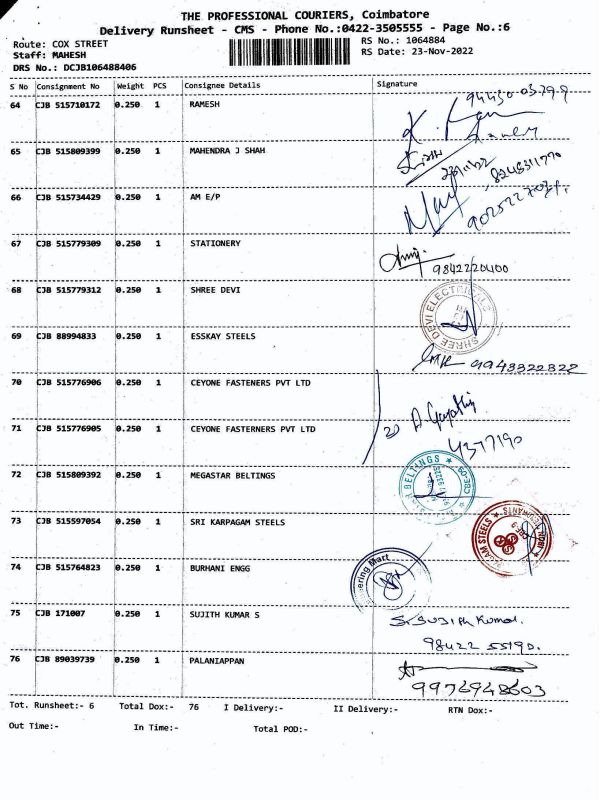 THE PROFESSIONAL COURIERS, Coimbatore
Delivery Runsheet - CMS - Phone No.:0422-3505555 - Page No.:6
Route: COX STREET
RS No.: 1064884
Staff: MAHESH
RS Date: 23-Nov-2022
DRS No.: DCJB106488406
S No Consignment No Weight PCS Consignee Details Signature
64 CJB 515710172 0.250 1 RAMESH
65 CJB 515809399 0.250 1 MAHENDRA J SHAH
66 CJB 515734429 0.250 1 AM E/P
67 CJB 515779309 0.250 1 STATIONERY
9842220400
68 CJB 515779312 0.250 1 SHREE DEVI
SHREE DEVI ELECTRICALS
69 CJB 88994833 0.250 1 ESSKAY STEELS
9943322822
70 CJB 515776906 0.250 1 CEYONE FASTENERS PVT LTD
71 CJB 515776905 0.250 1 CEYONE FASTERNERS PVT LTD
4377190
72 CJB 515809392 0.250 1 MEGASTAR BELTINGS
BELTINGS
CBE-09
73 CJB 515597054 0.250 1 SRI KARPAGAM STEELS
STEELS
74 CJB 515764823 0.250 1 BURHANI ENGG
Mart
75 CJB 171007 0.250 1 SUJITH KUMAR S
S. SUJITH KUMAR.
98422 55190.
76 CJB 89039739 0.250 1 PALANIAPPAN
9976948603
Tot. Runsheet:- 6 Total Dox:- 76 I Delivery:- II Delivery:- RTN Dox:-
Out Time:- In Time:- Total POD:-